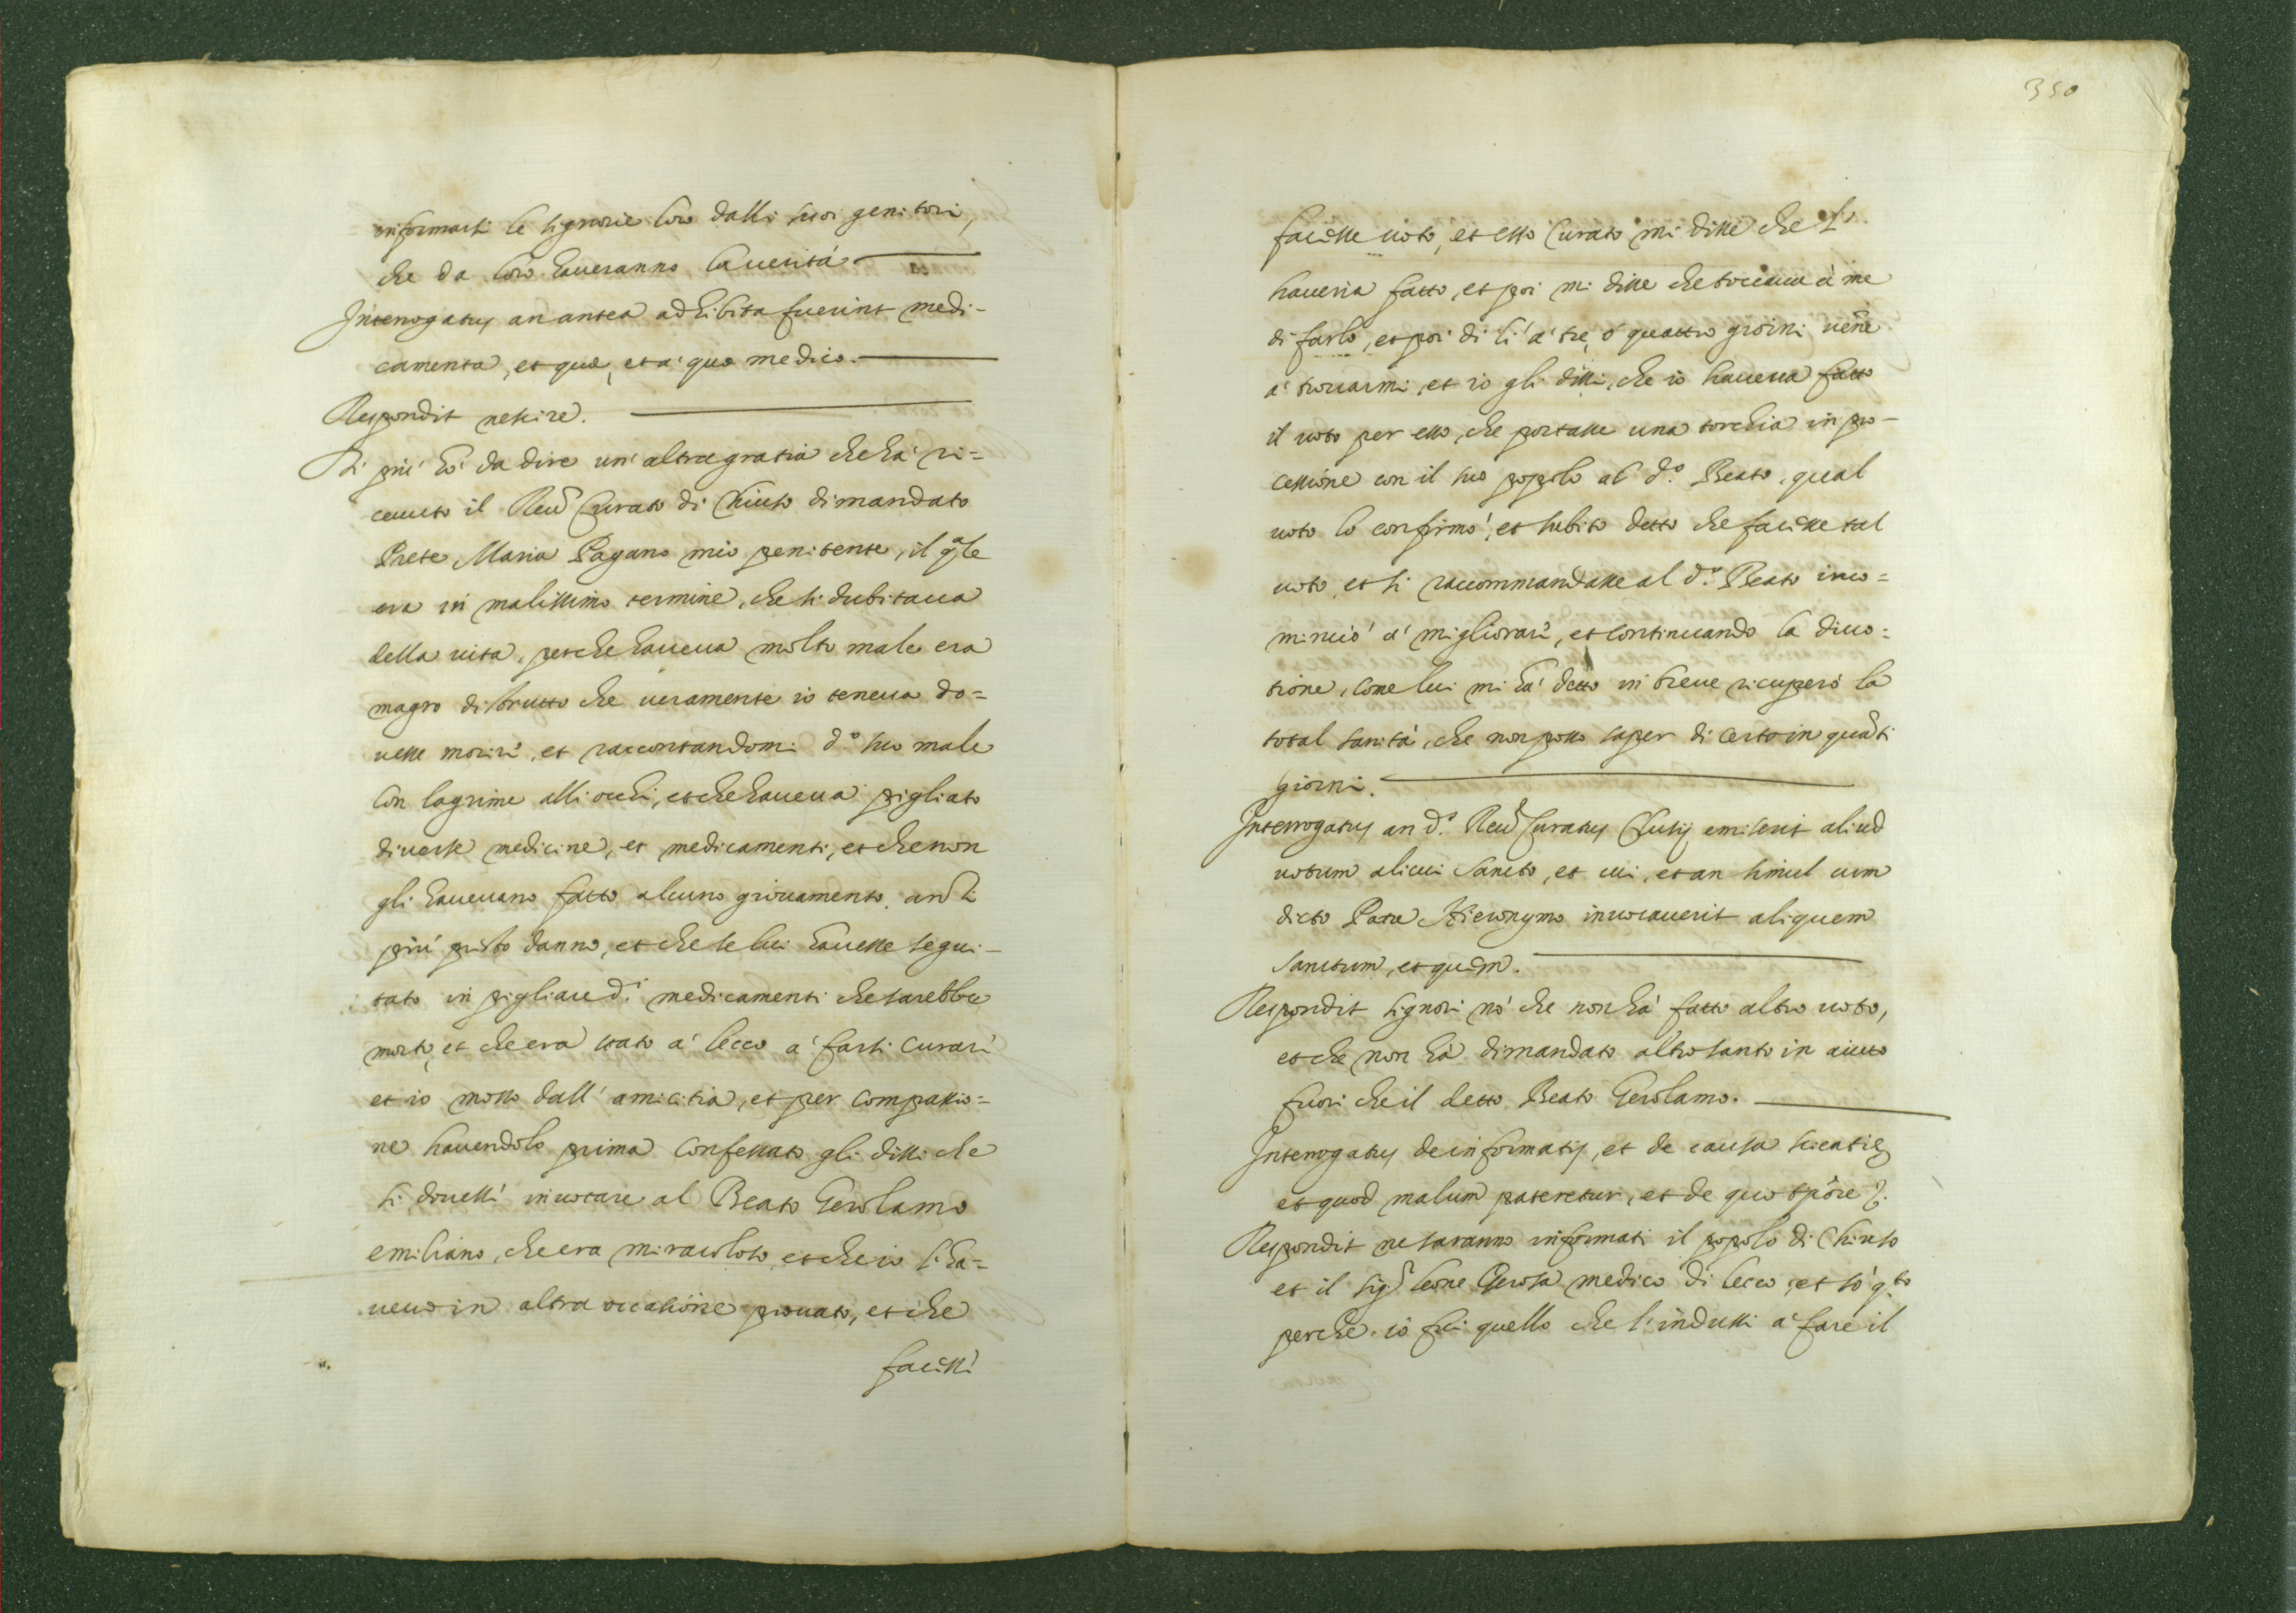 informarsi le signorie loro dalli suoi genitori,
che da loro haveranno la verità.
Interrogatus an antea adhibita fuerint medi-
camenta, et quæ, et a' quo medico.
Respondit nescire.
Di più hò da dire un' altra gratia che hà ri=
ceuuto il Reu.do Curato di Chiuso dimandato
Prete Maria Pagano mio penitente, il q.ale
era in malissimo termine, che si dubitaua
della uita, perche haueua molto male era
magro distrutto che ueramente io teneua do=
uesse morire, et raccontandomi d.o suo male
con lagrime alli occhi, et che haueua pigliato
diuerse medicine, et medicamenti, et che non
gli haueuano fatto alcuno giouamento, anzi
più presto danno, et che se lui hauesse segui-
tato in pigliare d.i medicamenti che sarebbe
morto, et che era stato a' Lecco a' farsi curare
et io mosso dall' amicitia, et per compassio=
ne hauendolo prima confessato gli dissi che
si douessi inuocare al Beato Gerolamo
emiliano, che era miracoloso, et che io l'ha=
ueuo in altra occasione prouato, et che
facessi
350
facesse uoto, et esso Curato mi disse che l'
haueria fatto, et poi mi disse che toccaua à me
di farlo, et poi di lì a' tre, ò quattro giorni uẽne
a' trouarmi, et io gli dissi, che io haueua fatto
il uoto per esso, che portasse una torchia in pro-
cessione con il suo popolo al d.o Beato, qual
uoto lo confirmò, et subito detto che facesse tal
uoto, et si raccommandasse al d.o Beato inco=
minciò a' migliorare, et continuando la diuo=
tione, come lui mi hà detto in breue ricuperò la
total sanità, che non posso saper di certo in quãti
giorni.
Interrogatus an d.s Reu.dus Curatus Clusij emiserit aliud
uotum alicui Sancto, et cui, et an simul cum
dicto Patre Hieronymo inuocauerit aliquem
Sanctum, et quem.
Respondit signori nò che non hà fatto altro uoto,
et che non hà dimandato altro santo in aiuto
fuori che il detto Beato Gerolamo.
Interrogatus de informatis, et de causa scientiæ
et quod malum pateretur, et de quo tpõre?
Respondit ne saranno informati il popolo di Chiuso
et il Sig.r Leone Gerosa medico di Lecco, et sò q.sto
perche io fui quello che l'indussi a' fare il